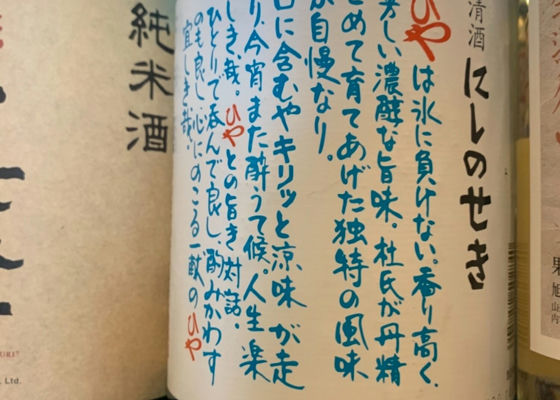 清酒 にしのせき
ひやは氷に負けない。香り高く、
芳しい濃醇な旨味。杜氏が丹精
こめて育てあげた独特の風味
が自慢なり。
口に含むやキリッと涼味が走
り、今宵また酔うて候。人生楽
しき哉。ひやとの旨き対話。
ひとりで呑んで良し、酌みかわす
のも良し、心にのこる一献のひや
宜しき哉。
純米酒
Ltd.